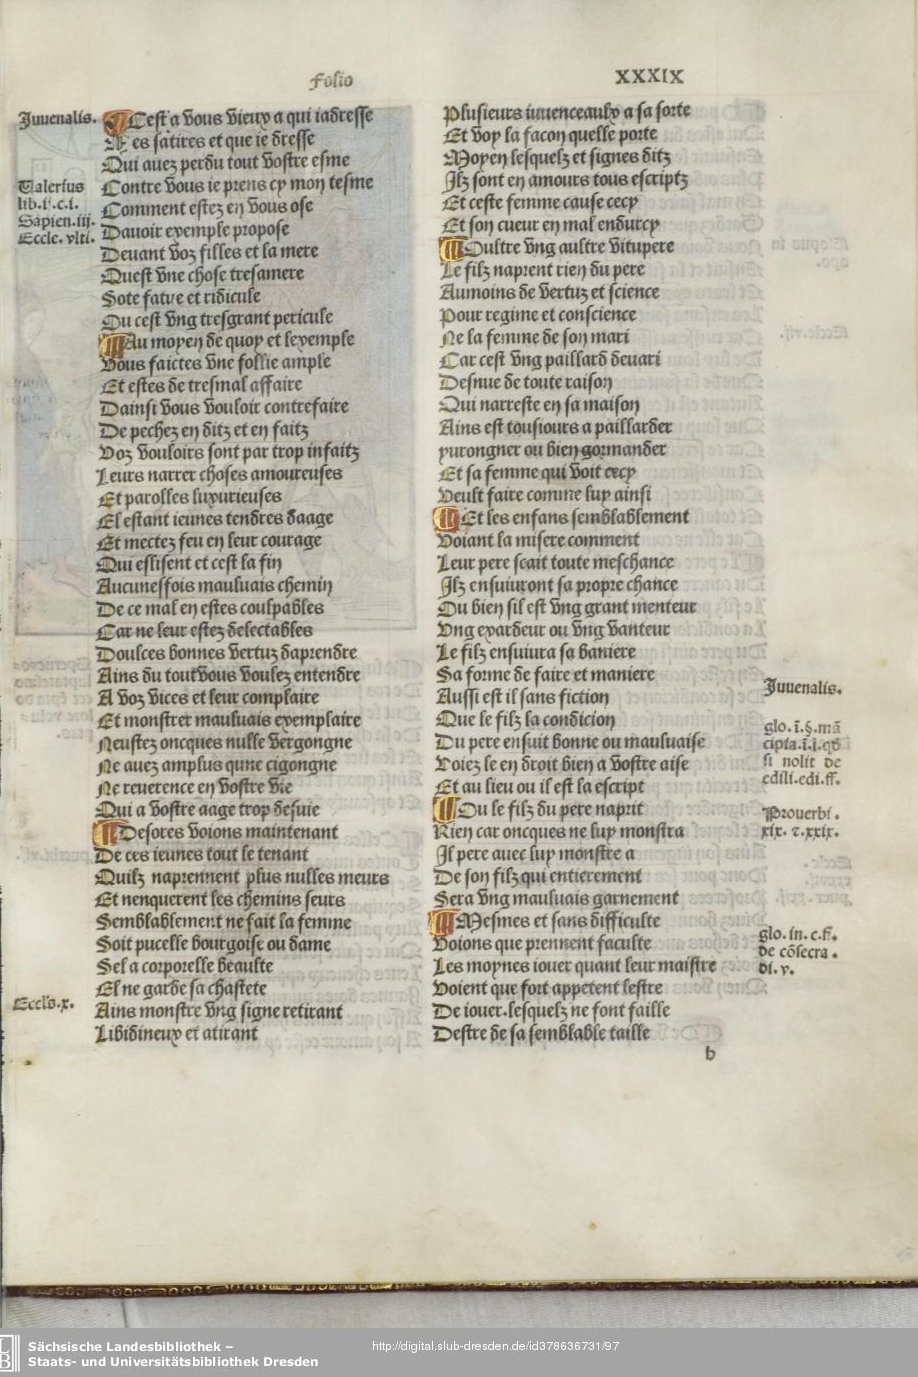 Folio XXXIX
Juuenalis.
Valerius
lib.i.c.i.
Sapien.iij.
Eccle. vlti.
Cest a vous vieux a qui iadresse
Les satires et que ie dresse
Qui auez perdu tout vostre esme
Contre vous ie prens cy mon tesme
Comment estez en vous ose
Dauoir exemple propose
Deuant voz filles et la mere
Quest vne chose tresamere
Sote fatue et ridicule
Ou cest vng tresgrant pericule
Au moyen de quoy et lexemple
Vous faictes vne follie ample
Et estes de tresmal affaire
Dainsi vous vouloir contrefaire
De pechez en ditz et en faitz
Voz vouloirs sont par trop infaitz
Leurs narrer choses amoureuses
Et parolles luxurieuses
El estant ieunes tendres daage
Et mectez feu en leur courage
Qui eslisent et cest la fin
Aucuneffois mauluais chemin
De ce mal en estes coulpables
Car ne leur estez delectables
Doulces bonnes vertuz daprendre
Ains du tout vous voulez entendre
A voz vices et leur complaire
Et monstrer mauluais exemplaire
Neustez oncques nulle vergongne
Ne auez amplus qune cigongne
Ne reuerence en vostre vie
Qui a vostre aage trop desuie
Desores voions maintenant
De ces ieunes tout le tenant
Quilz naprennent plus nulles meurs
Et nenquerent les chemins seurs
Semblablement ne fait la femme
Soit pucelle bourgoise ou dame
Sel a corporelle beaulte
El ne garde sa chastete
Eccls.x.
Ains monstre vng signe retirant
Libidineux et atirant
Plusieurs iuuenceaulx a sa sorte
Et voy la facon quelle porte
Moyen lesquelz et signes ditz
Ilz sont en amours tous escriptz
Et ceste femme cause cecy
Et son cueur en mal endurcy
Oultre vng aultre vitupere
Le filz naprent rien du pere
Aumoins de vertuz et science
Pour regime et conscience
Ne la femme de son mari
Car cest vng paillard deuari
Desnue de toute raison
Qui narreste en sa maison
Ains est tousiours a paillarder
yurongner ou bien gormander
Et sa femme qui voit cecy
Veult faire comme luy ainsi
Et les enfans semblablement
Voiant la misere comment
Leur pere scait toute meschance
Ilz ensuiuront sa propre chance
Ou bien sil est vng grant menteur
Vng exardeur ou vng vanteur
Le filz ensuiura sa baniere
Sa forme de faire et maniere
Aussi est il sans fiction
Que le filz la condicion
Du pere ensuit bonne ou mauluaise
Voiez le en droit bien a vostre aise
Et au lieu ou il est la escript
Ou le filz du pere naprit
Rien car oncques ne luy monstra
Il pere auec luy monstre a
De son filz qui entierement
Sera vng mauluais garnement
Mesmes et sans difficulte
Voions que prennent faculte
Les moynes iouer quant leur maistre
Voient que fort appetent lestre
De iouer. lesquelz ne font faille
Destre de sa semblable taille
Juuenalis.
glo.ī.§.mā
cipia.ī.i.qđ
si nolit de
edili.edi.ff.
Prouerbi.
xix. ⁊.xxix.
glo. in. c.ff.
de cōsecra.
di. v.
b
Sächsische Landesbibliothek –
Staats- und Universitätsbibliothek Dresden
http://digital.slub-dresden.de/id378636731/97